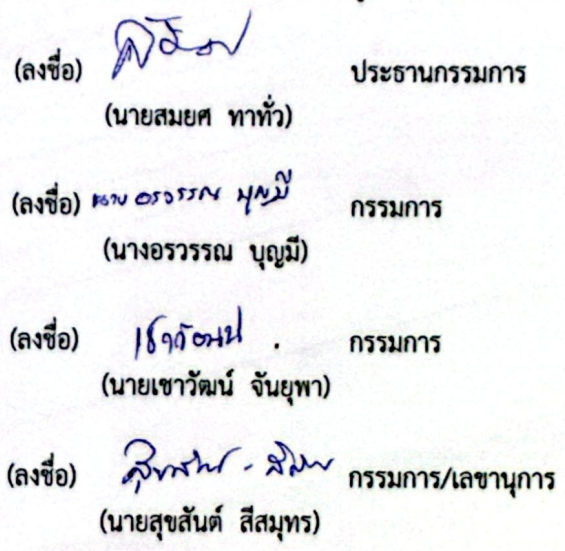 (ลงชื่อ) ประธานกรรมการ
(นายสมยศ ทาทั่ว)
(ลงชื่อ) นาง อรวรรณ บุญมี กรรมการ
(นางอรวรรณ บุญมี)
(ลงชื่อ) เชาวัฒน์ กรรมการ
(นายเชาวัฒน์ จันยุพา)
(ลงชื่อ) กรรมการ/เลขานุการ
(นายสุขสันต์ สีสมุทร)